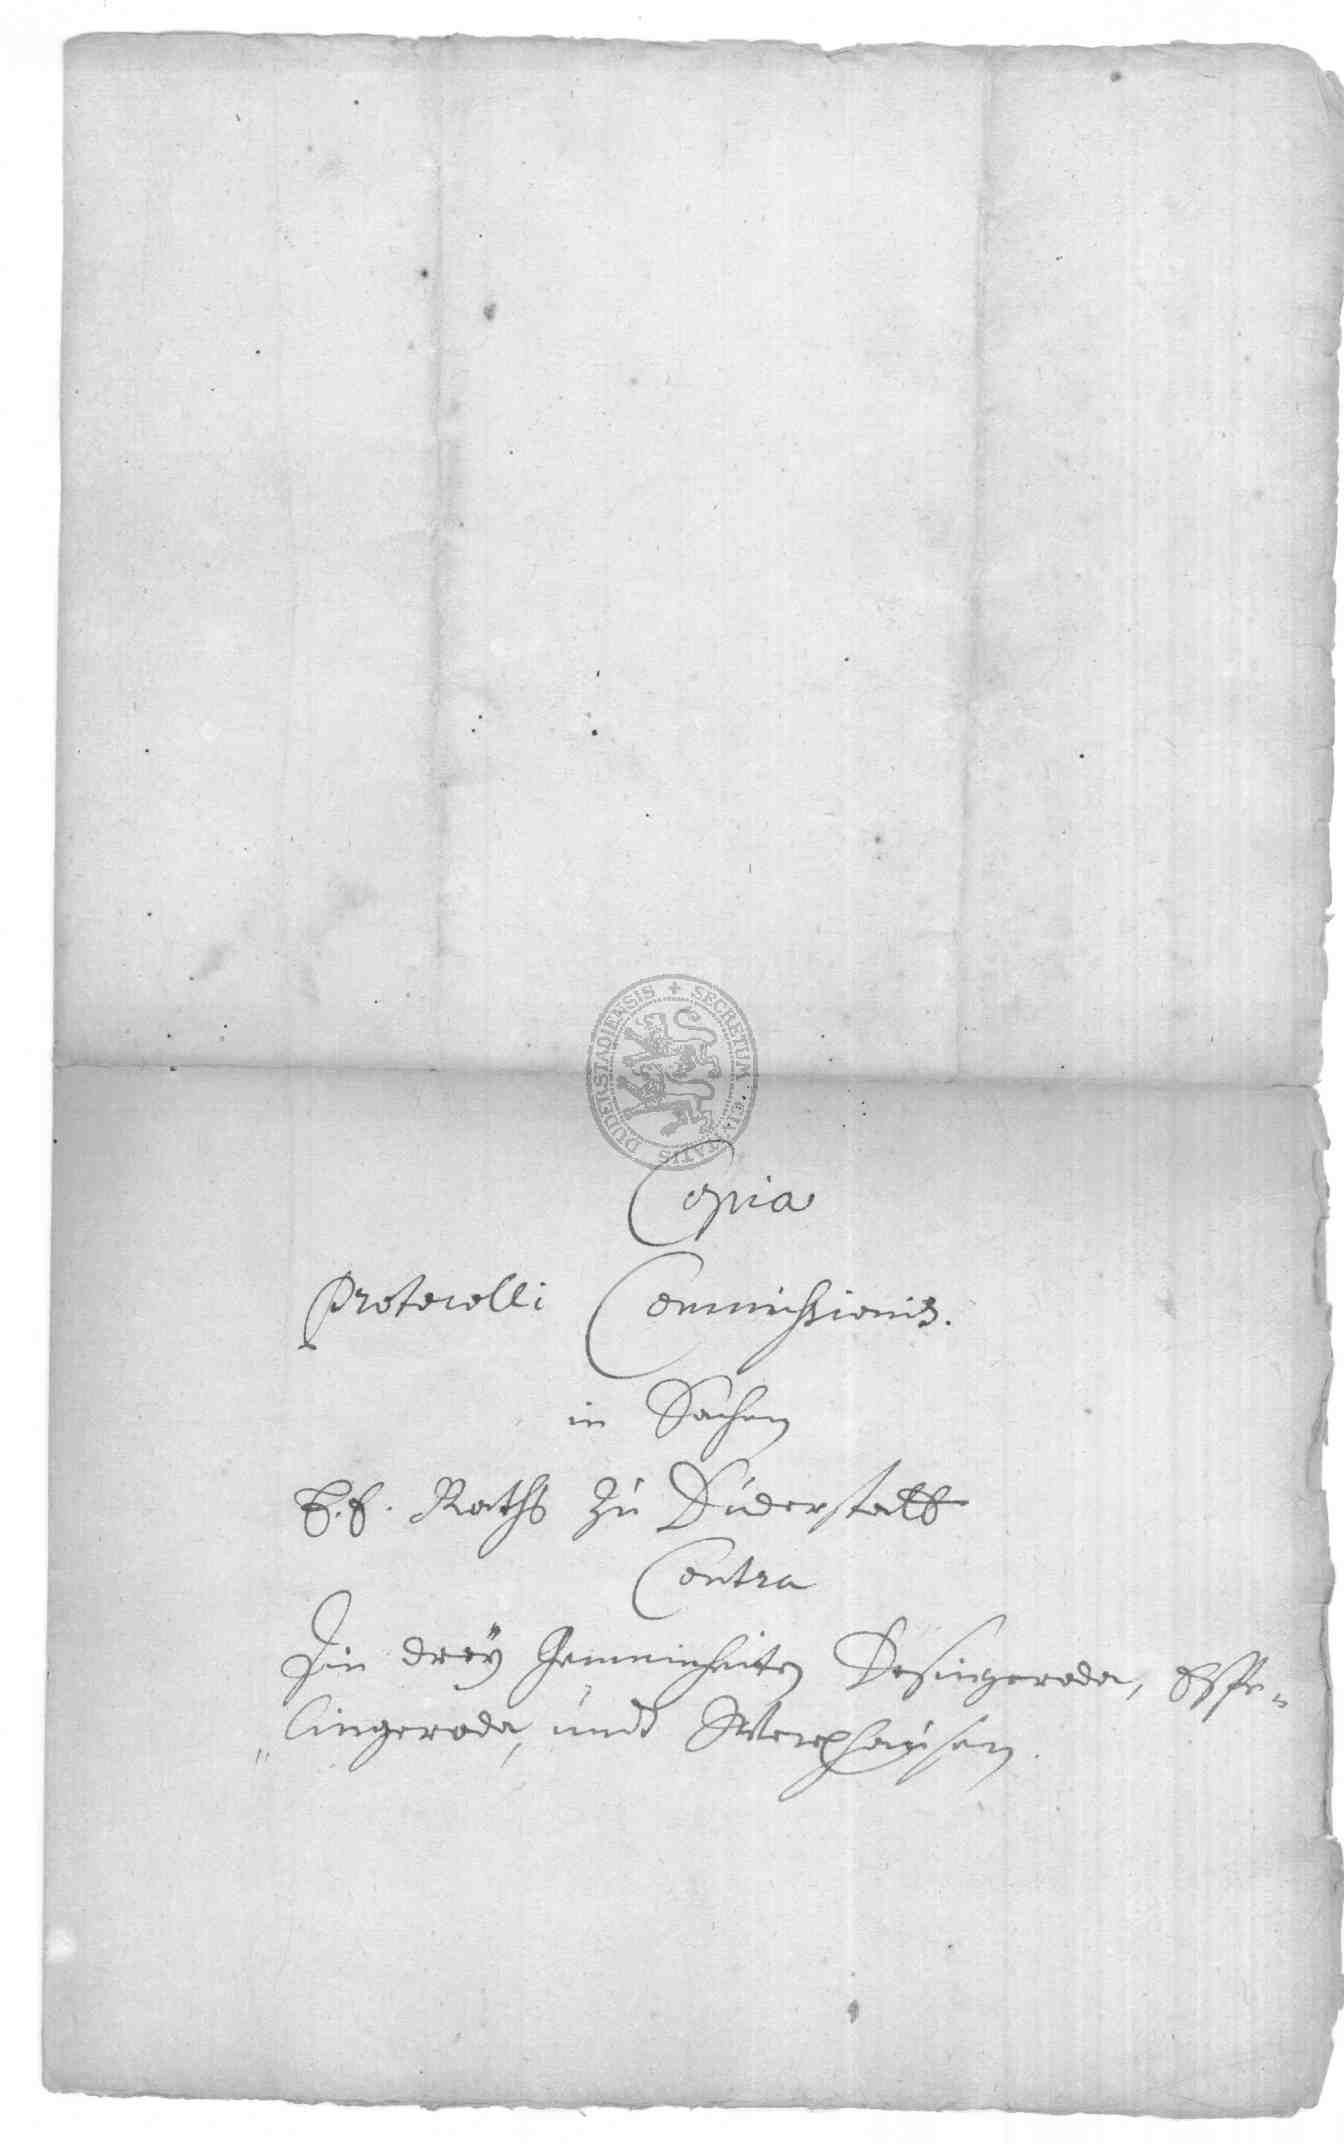 SECRETUM CIVITATIS DUDERSTADIENSIS
Copia
Protocolli Commissionis.
in Sachen
E. E. Raths zu Duderstatt
Contra
Die dreÿ Gemeinheiten Desingeroda, Esse=
"lingeroda, undt Werxhausen.